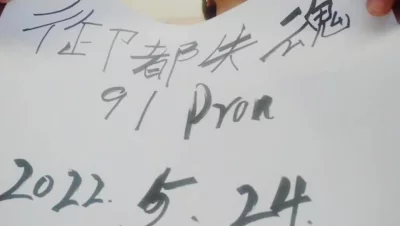 都失魂
91 Pron
2022.5.24.